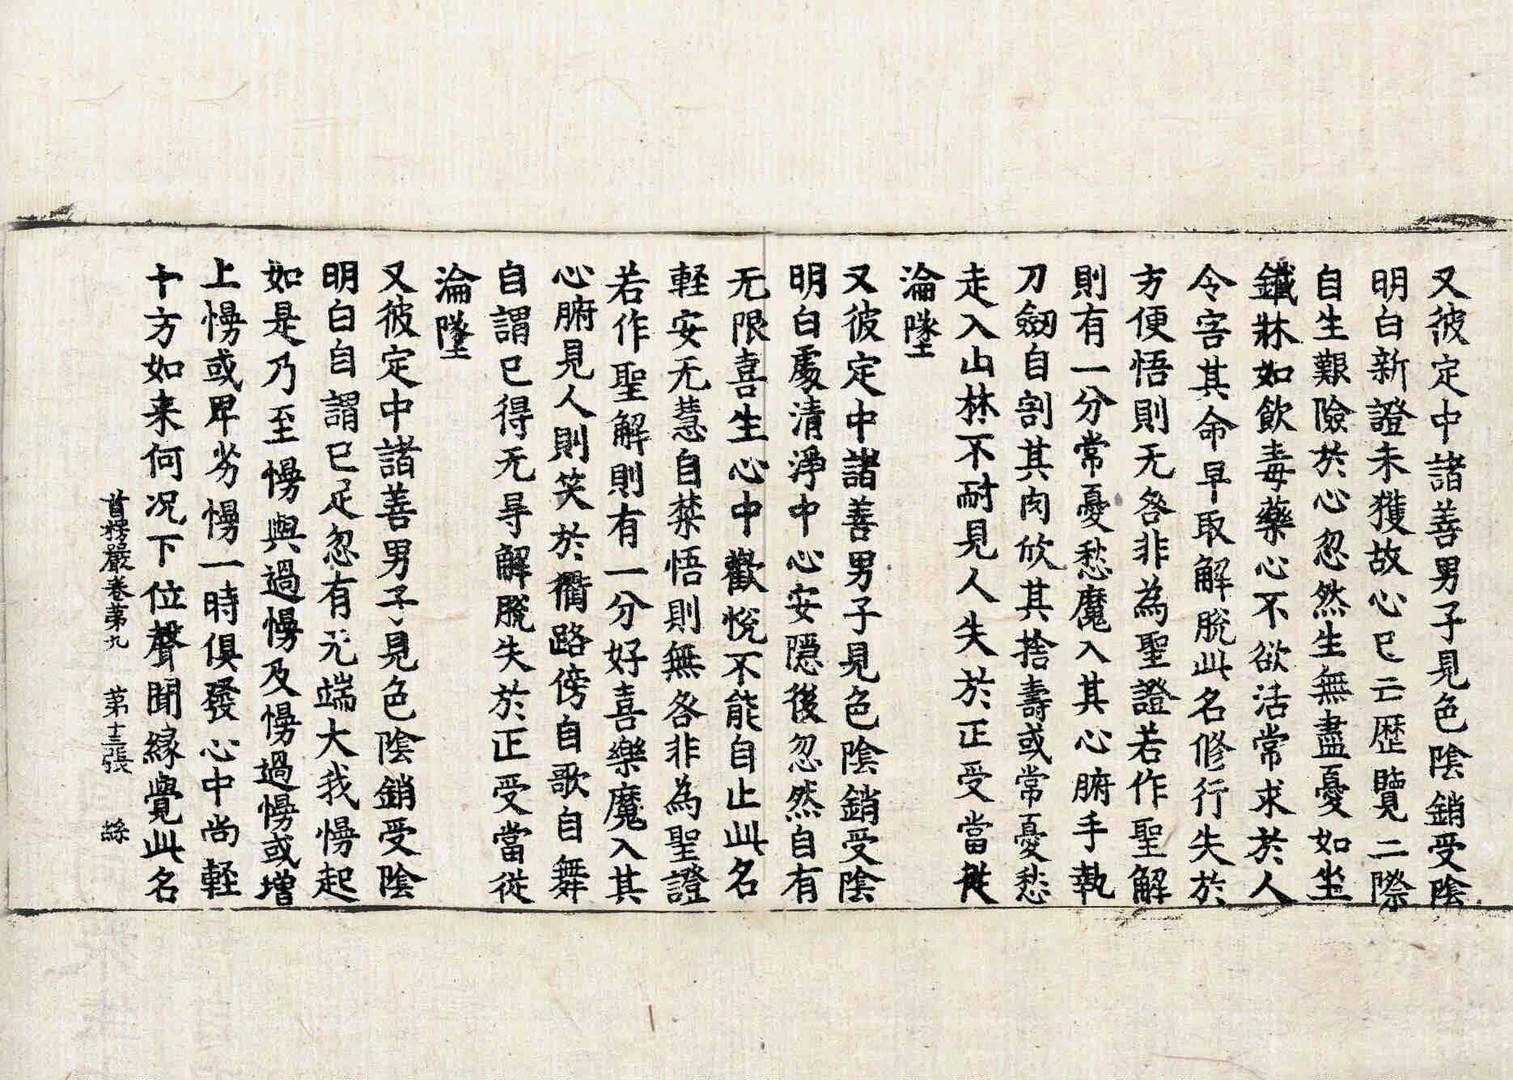 又彼定中諸善男子見色陰銷受陰
明白新證未獲故心已亡歷覽二際
自生艱險於心忽然生無盡憂如坐
鐵牀如飲毒藥心不欲活常求於人
令害其命早取解脫此名修行失於
方便悟則无咎非為聖證若作聖解
則有一分常憂愁魔入其心腑手執
刀劒自割其肉欣其捨壽或常憂愁
走入山林不耐見人失於正受當從
淪墜
又彼定中諸善男子見色陰銷受陰
明白處清淨中心安隱後忽然自有
无限喜生心中歡悅不能自止此名
輕安无慧自禁悟則無咎非為聖證
若作聖解則有一分好喜樂魔入其
心腑見人則笑於衢路傍自歌自舞
自謂已得无㝵解脫失於正受當從
淪墜
又彼定中諸善男子見色陰銷受陰
明白自謂已足忽有无端大我慢起
如是乃至慢與過慢及慢過慢或增
上慢或卑劣慢一時俱發心中尚輕
十方如来何況下位聲聞緣覺此名
首楞嚴卷第九　第十三張　絲